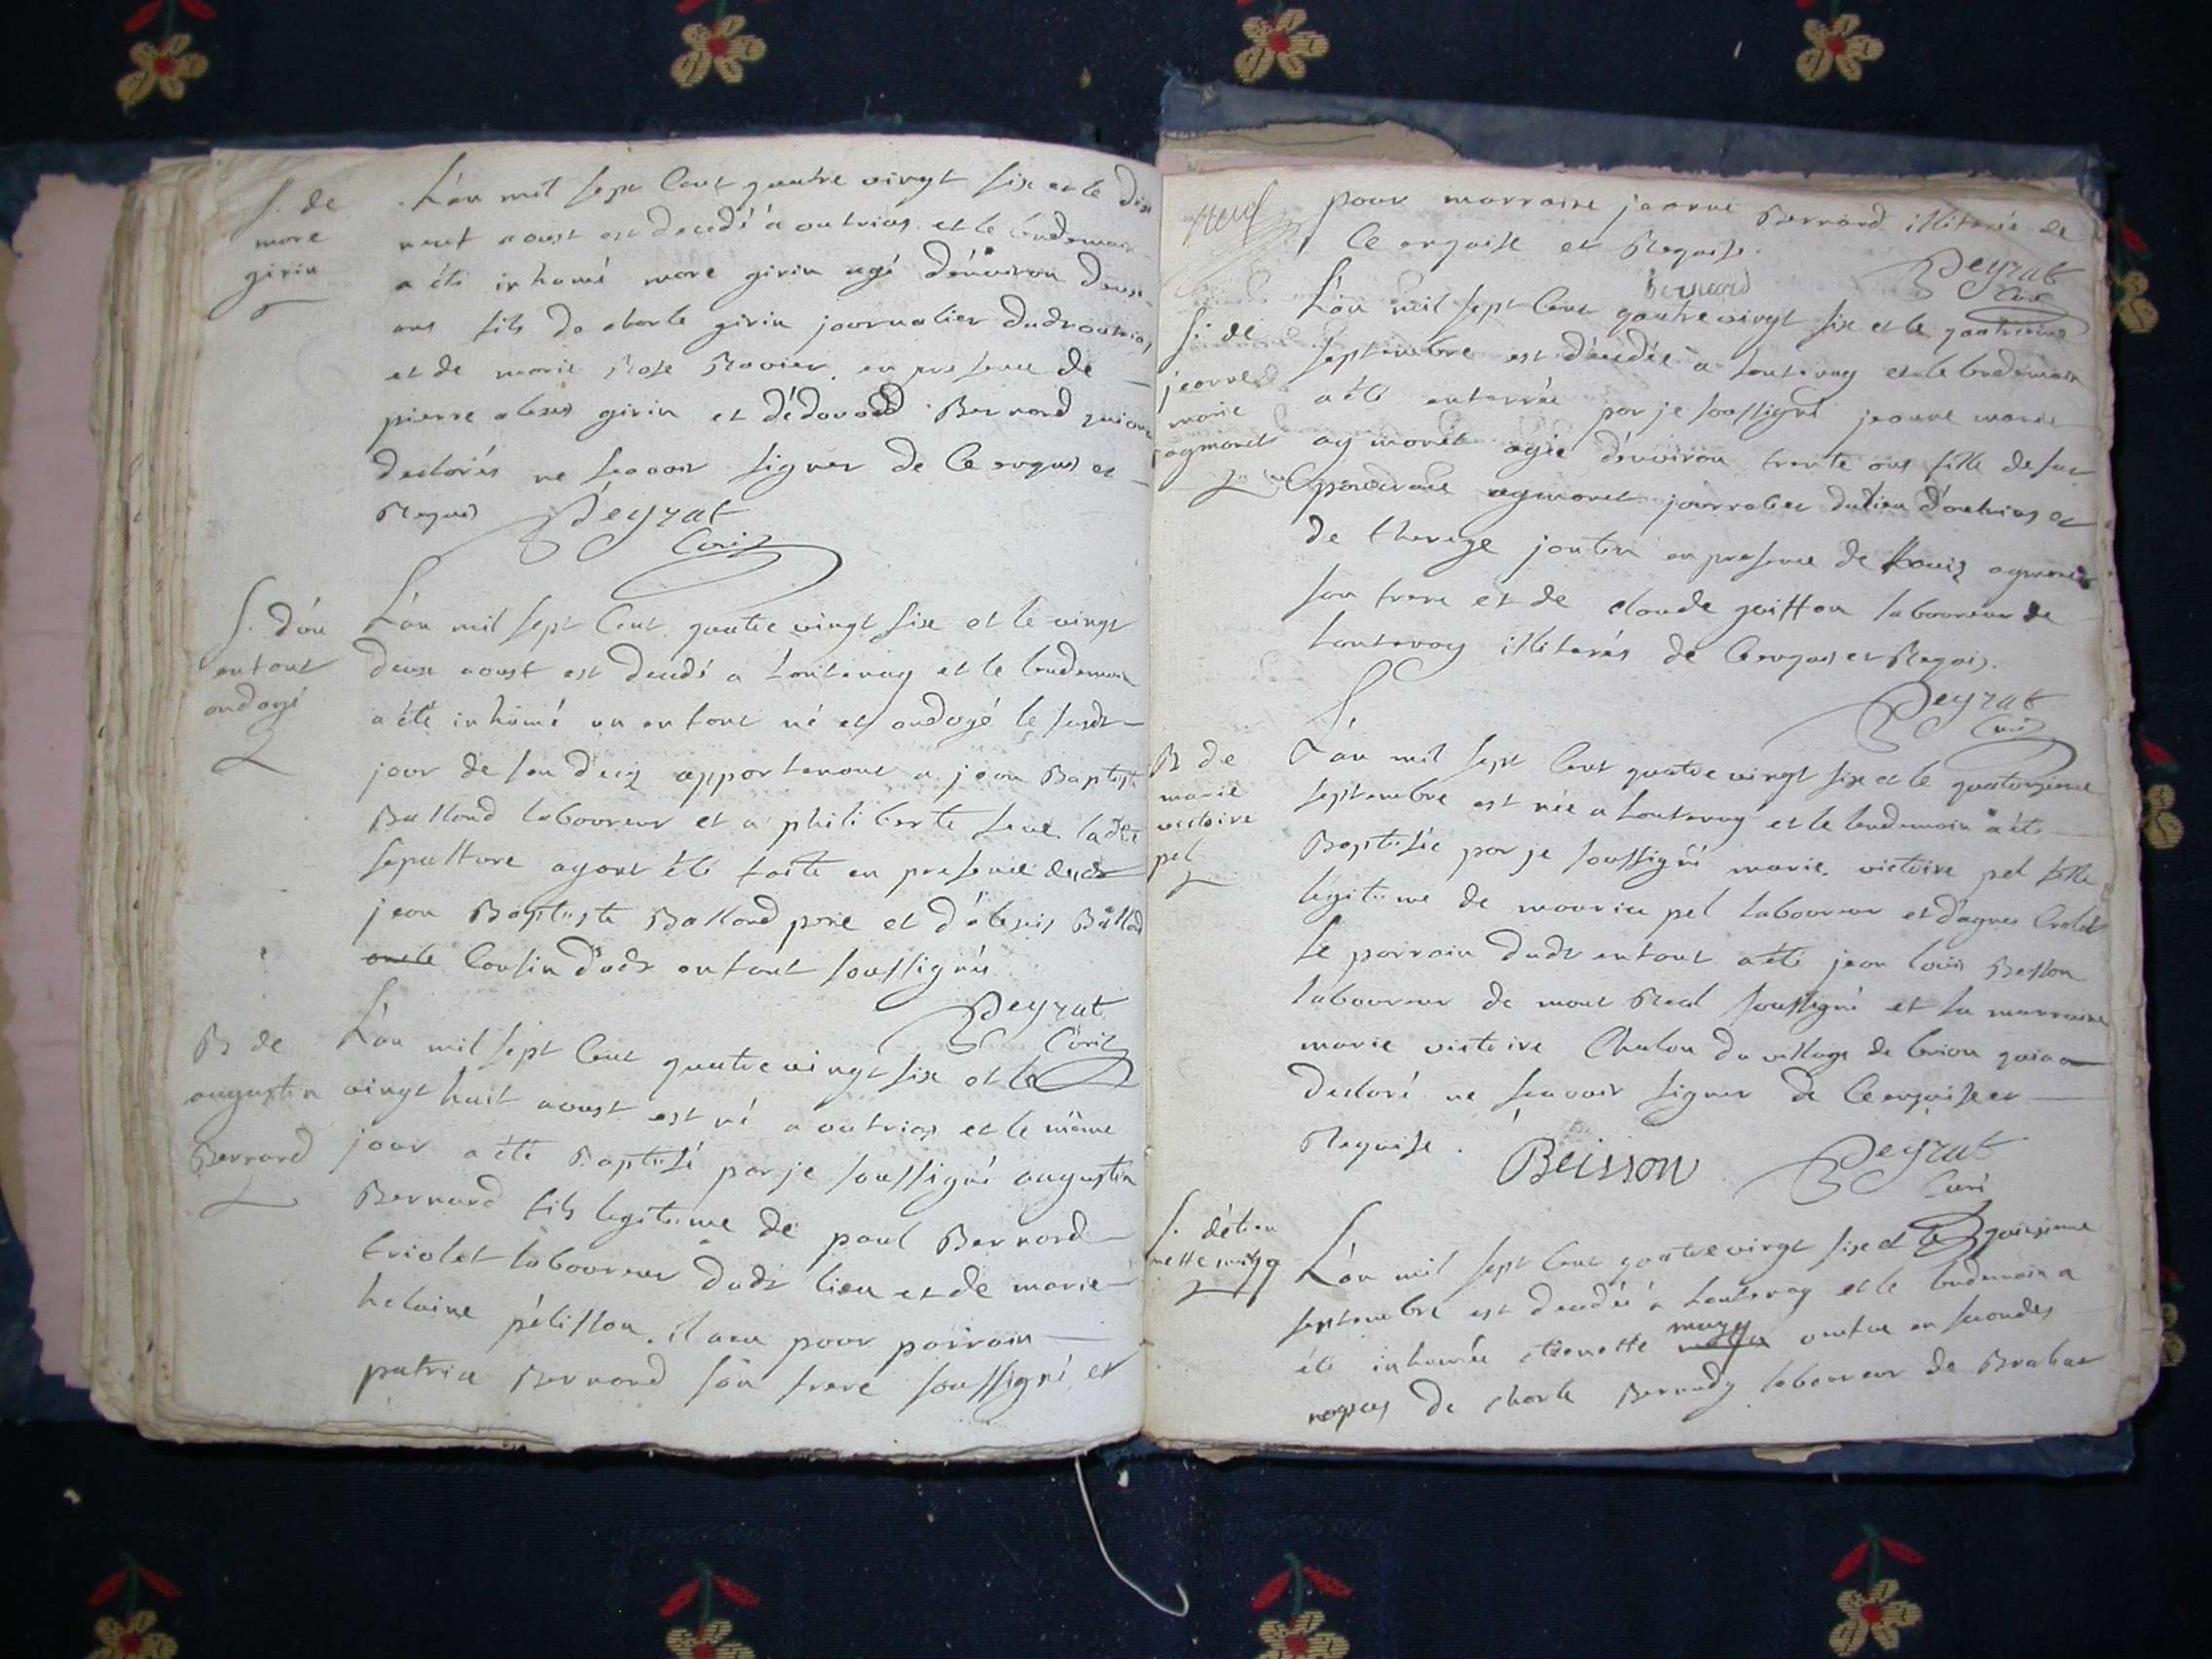 S. de
marc
girin
L'an mil sept cent quatre vingt six et le dix
neuf aoust est decedé a outrias et le lendemain
a été inhumé marc girin agé d'énviron deux
ans fils de charle girin journalier dudt outrias
et de marie Rose Ravier en presence de
pierre alexis girin et d'édouard Bernard qui ont
declarés ne scavoir signer de ce enquis et
Requis Peyzat
Curé
S. d'un
enfant
ondoyé
L'an mil sept cent quatre vingt six et le vingt
deux aoust est decedé a Lantenay et le lendemain
a été inhumé un enfant né et ondoyé le susdt
jour de son decez appartenant a jean Baptiste
Balland laboureur et a philiberte ladte
sepulture ayant été faite en presence dudt
jean Baptiste Balland pere et d'alexis Balland
oncle cousin dudt enfant soussignés
Peyzat
Curé
B de
augustin
Bernard
L'an mil sept cent quatre vingt six et le
vingt huit aoust est né a outrias et le même
jour a été Baptisé par je soussigné augustin
Bernard fils legitime de paul Bernard
triolet laboureur dudt lieu et de marie
helaine pélisson. il a eu pour parrain
patrice Bernard son frere soussigné et
neuf
pour marraine jeanne Bernard illiterée de
ce enquise et Requise.
bernard Peyzat
Curé
S. de
jeanne
marie
aymonet
L'an mil sept cent quatre vingt six et le quatrieme
septembre est decedée a Lantenay et le lendemain
a été enterrée par je soussigné jeanne marie
aymonet agée d'énviron trente ans fille de feu
aymonet journalier du lieu d'outrias et
de therese jantin en presence de Louis aymonet
son frere et de claude guiffon laboureur de
Lantenay illiterés de ce enquis et Requis.
Peyzat
Curé
B de
marie
victoire
pel
L'an mil sept cent quatre vingt six et le quatorzieme
septembre est née a Lantenay et le lendemain a été
Baptisée par je soussigné marie victoire pel fille
legitime de maurice pel laboureur et d'agnes
Le parrain dudt enfant a été jean louis Besson
laboureur de mont Real soussigné et la marraine
marie victoire Chalon du village de brion qui a
declaré ne scavoir signer de ce enquise et
Requise.
Beisson Peyzat
Curé
S. d'étien
nette
L'an mil sept cent quatre vingt six et le quinzieme
septembre est decedée a Lantenay et le lendemain a
été inhumée etienette en secondes
nopces de charle laboureur de